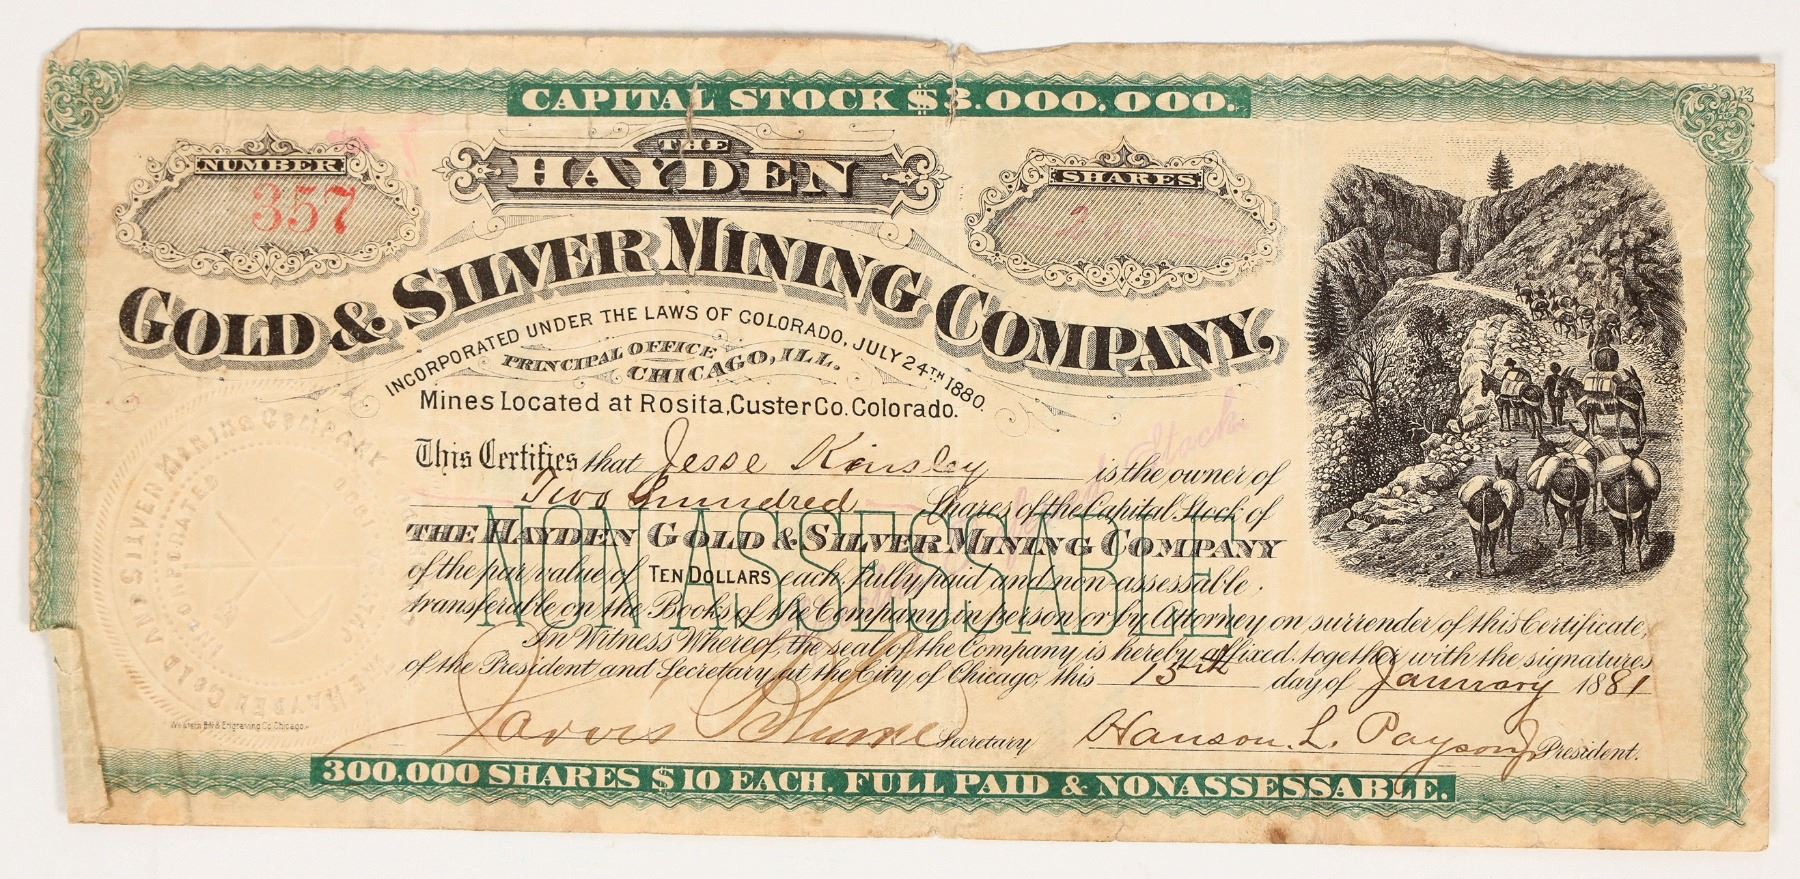 CAPITAL STOCK $3.000.000.
NUMBER
357
THE
HAYDEN
SHARES
GOLD & SILVER MINING COMPANY,
INCORPORATED UNDER THE LAWS OF COLORADO, JULY 24TH 1880.
PRINCIPAL OFFICE
CHICAGO, ILL.
Mines Located at Rosita, Custer Co. Colorado.
This Certifies that Jesse Kinsley is the owner of
Two hundred Shares of the Capital Stock of
THE HAYDEN GOLD & SILVER MINING COMPANY
of the par value of TEN DOLLARS each, fully paid and non-assessable,
NON ASSESSABLE
transferable on the Books of the Company in person or by Attorney on surrender of this Certificate,
In Witness Whereof, the seal of the Company is hereby affixed, together with the signatures
of the President and Secretary at the City of Chicago, this 15th day of January 1881
Secretary Hanson L. Payson President.
Western B.N. & Engraving Co. Chicago.
THE HAYDEN GOLD AND SILVER MINING COMPANY
INCORPORATED
1880
Stock
300,000 SHARES $10 EACH, FULL PAID & NONASSESSABLE.